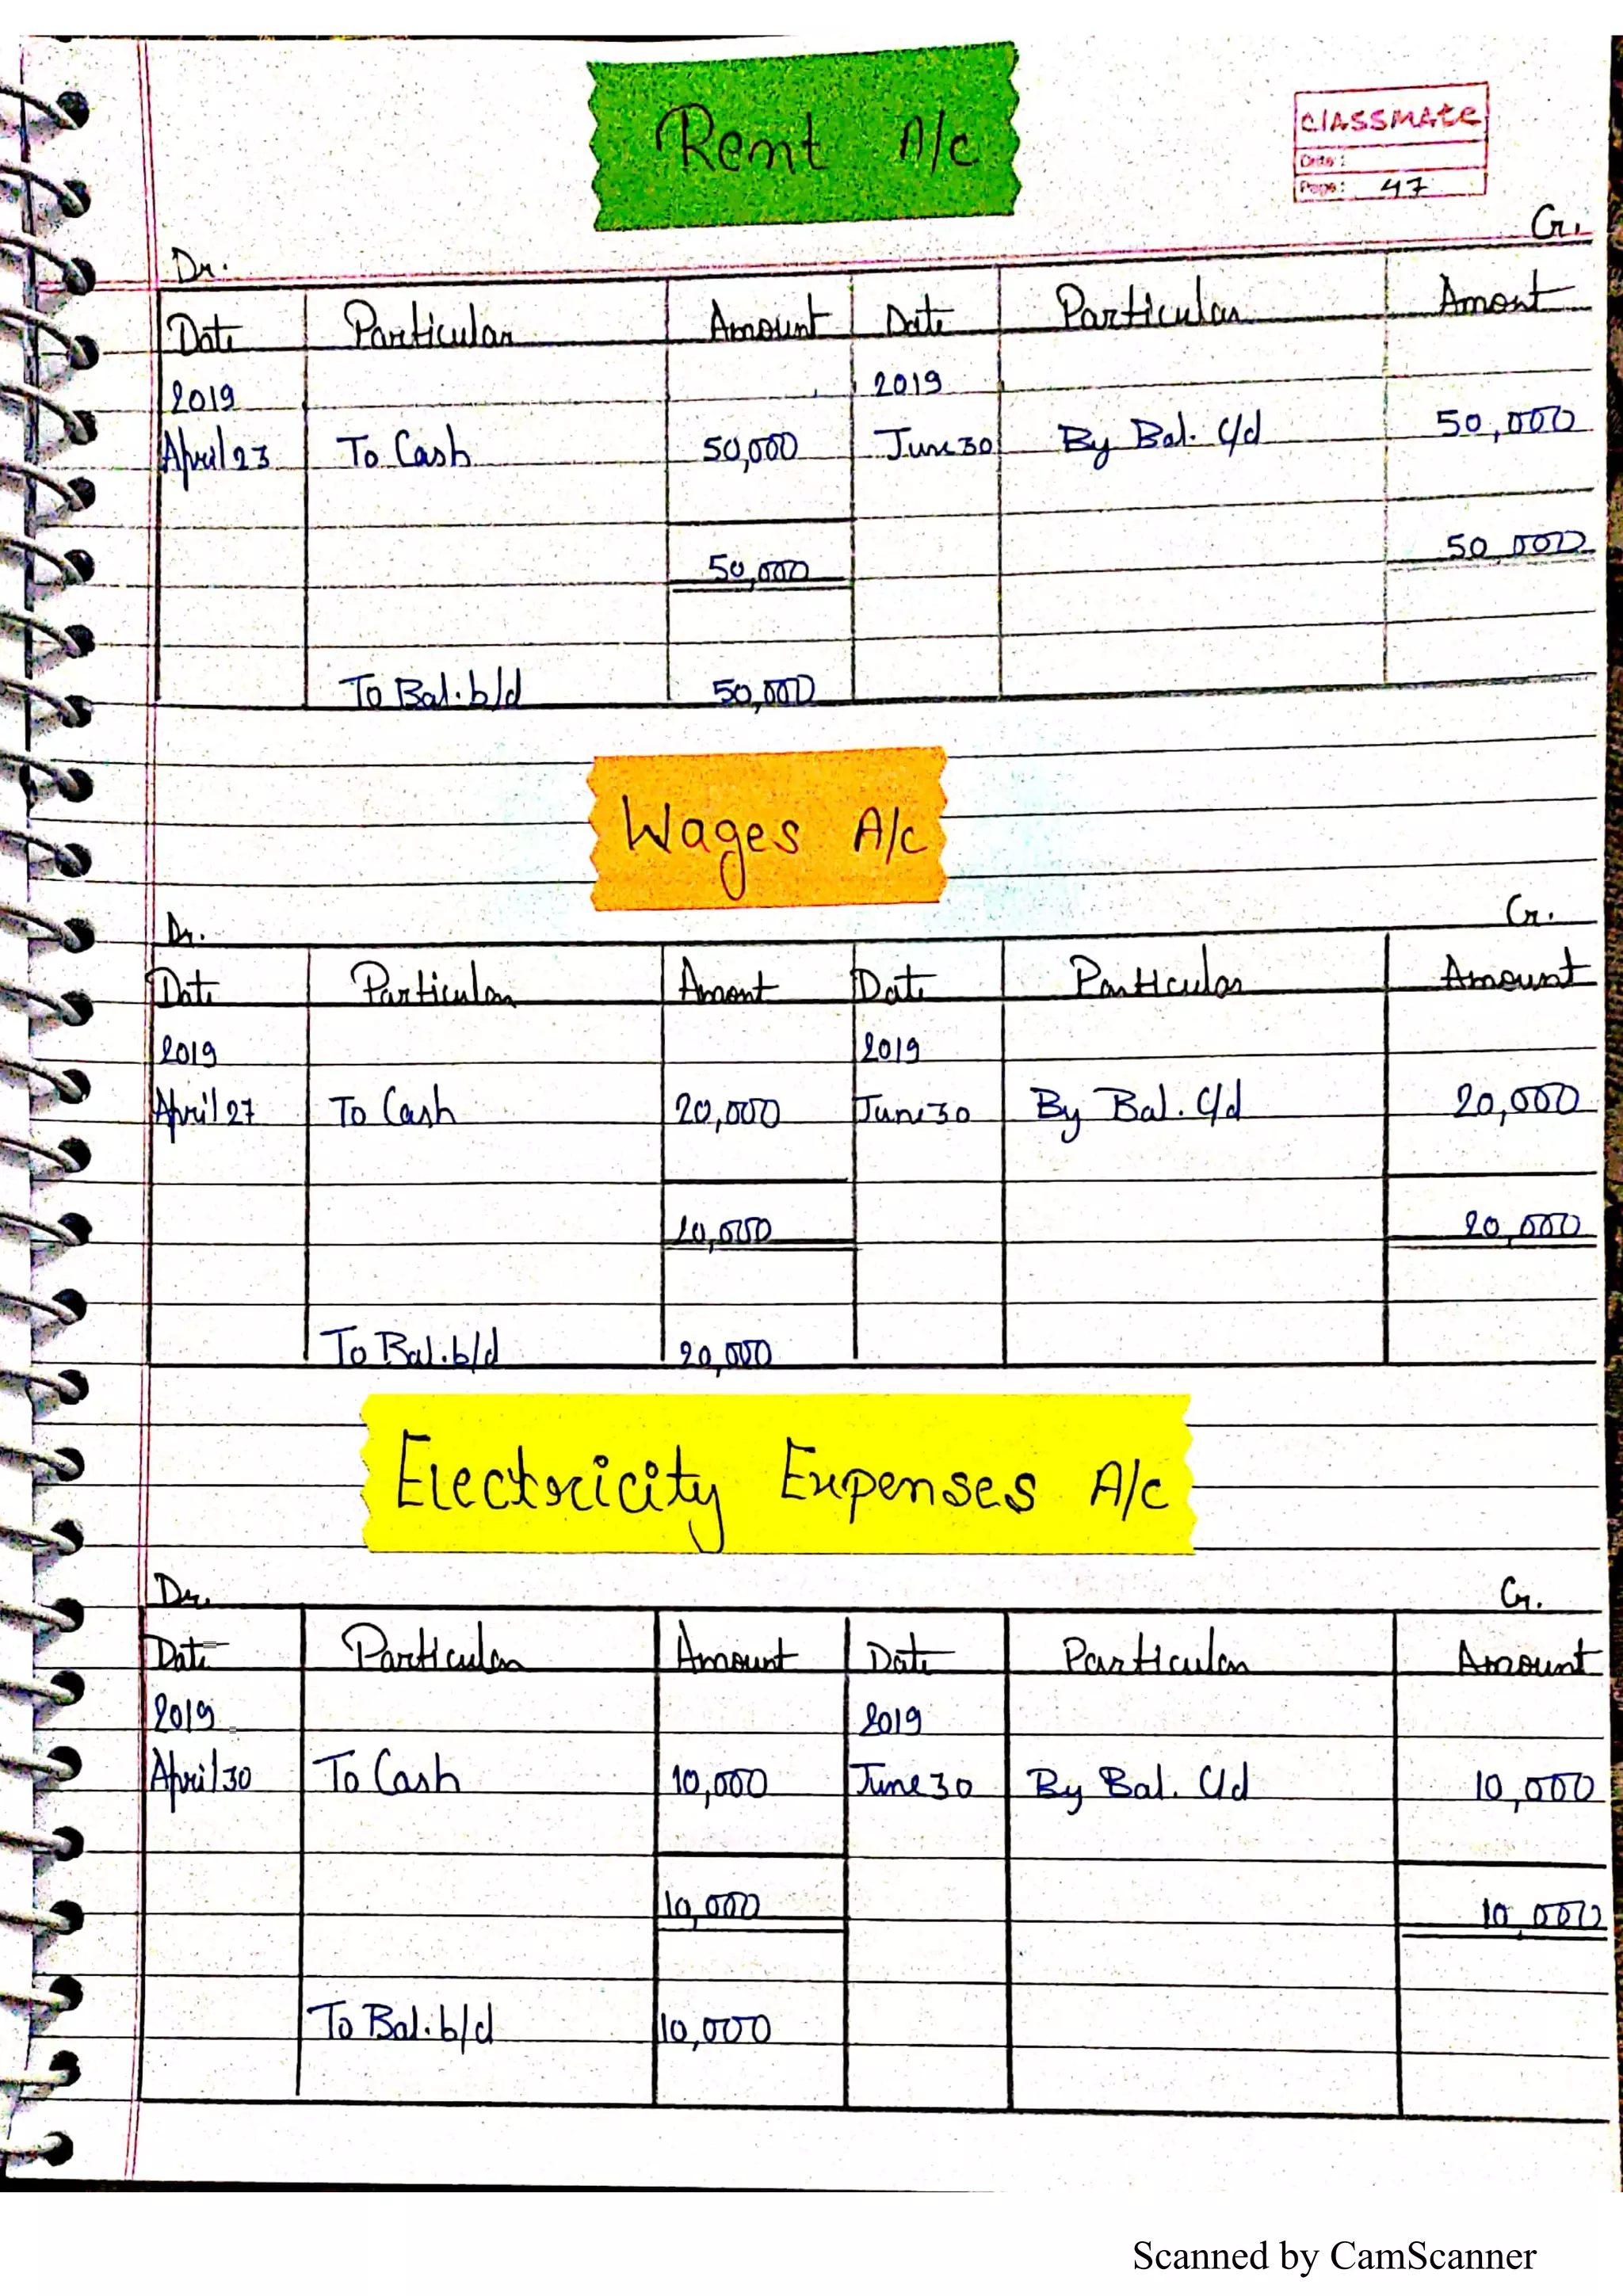 Rent A/c
CLASSMATE
Date:
Page: 47
Dr. Cr.
Date Particular Amount Date Particular Amont
2019 2019
April 23 To Cash 50,000 June 30 By Bal. C/d 50,000
50,000 50 000
To Bal. b/d 50,000
Wages A/c
Dr. Cr.
Date Particular Amont Date Particular Amount
2019 2019
April 27 To Cash 20,000 June 30 By Bal. C/d 20,000
20,000 20,000
To Bal. b/d 20,000
Electricity Expenses A/c
Dr. Cr.
Date Particular Amount Date Particular Amount
2019 2019
April 30 To Cash 10,000 June 30 By Bal. C/d 10,000
10,000 10,000
To Bal. b/d 10,000
Scanned by CamScanner